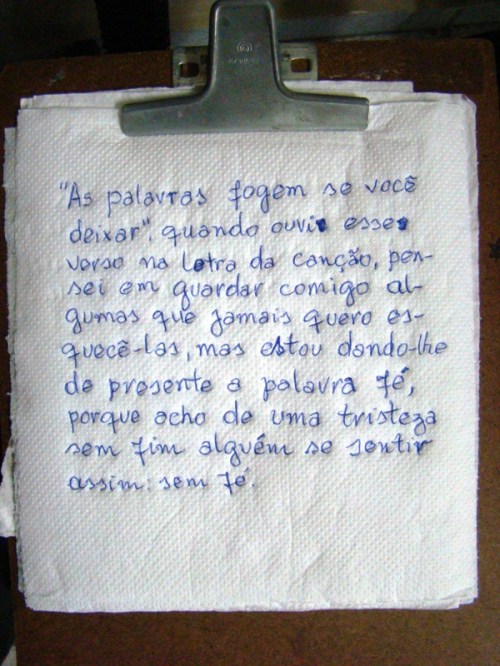 "As palavras fogem se você
deixar". quando ouvir esses
verso na letra da canção, pen-
sei em guardar comigo al-
gumas que jamais quero es-
quecê-las, mas estou dando-lhe
de presente a palavra fé,
porque acho de uma tristeza
sem fim alguém se sentir
assim: sem fé.